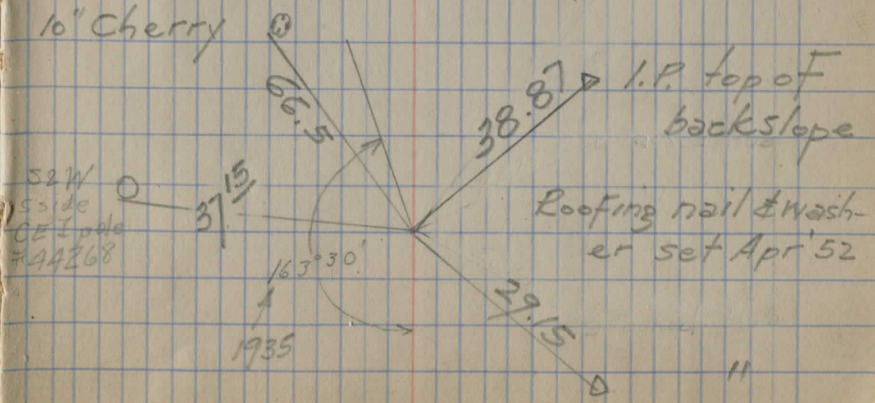 10" Cherry
66.5
38.87
I.P. top of
backslope
S2W
S side
CEI pole
#44268
37.15
Roofing nail & wash-
er set Apr '52
163°30'
1935
29.15
"